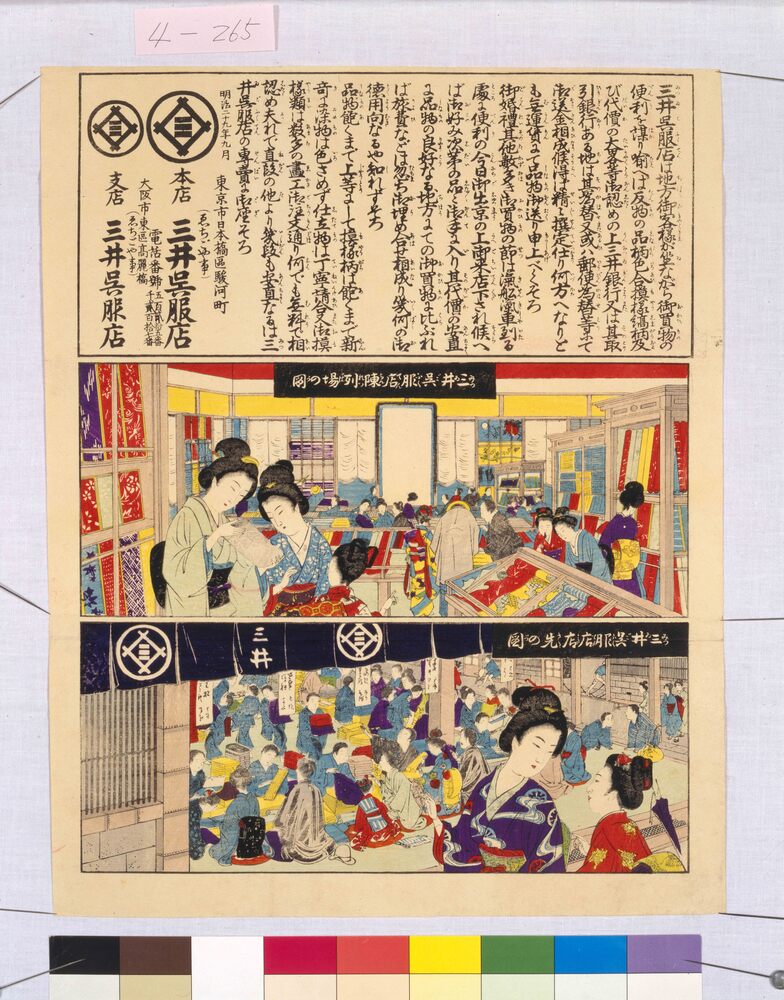 4-265
三井呉服店は地方御客様が坐ながら御買物の
便利を謀り荀へは反物の品柄色合摸様縞柄及
び代價の大畧等御認めの上三井銀行又は其取
引銀行ある地は其為替又或は郵便為替等にて
御送金相成候得は精々撰定仕り何方へなりと
も無運賃にて品物御送り申上べくそろ
御婚禮其他數多き御買物の節は滊舩滊車到る
處に便利の今日御出京の上南東店下され候へ
ば御好み次第の品々御手に入り其代價の安直
に品物の良好なる地方にての御買物に比ぶれ
ば旅費などは忽ち御埋め合せ相成り幾何の御
徳用向なるや知れずそろ
品物飽くまで上等にして摸様柄は飽くまで新
奇に染物は色さめず仕立物は丁寧請合又御摸
様類は數多の畫工御注文通り何でも無料で相
認め夫れで直段の他より幾段も安直なるは三
井呉服店の專賣に御座そろ
明治二十九年九月
東京市日本橋區駿河町
(ゑちごや事)
本店 三井呉服店
電話番號 五百貳拾五番 千貳百拾七番
大阪市東區高麗橋
(ゑちごや事)
支店 三井呉服店
三井呉服店陳列場の圖
三井呉服店店先の圖
三井